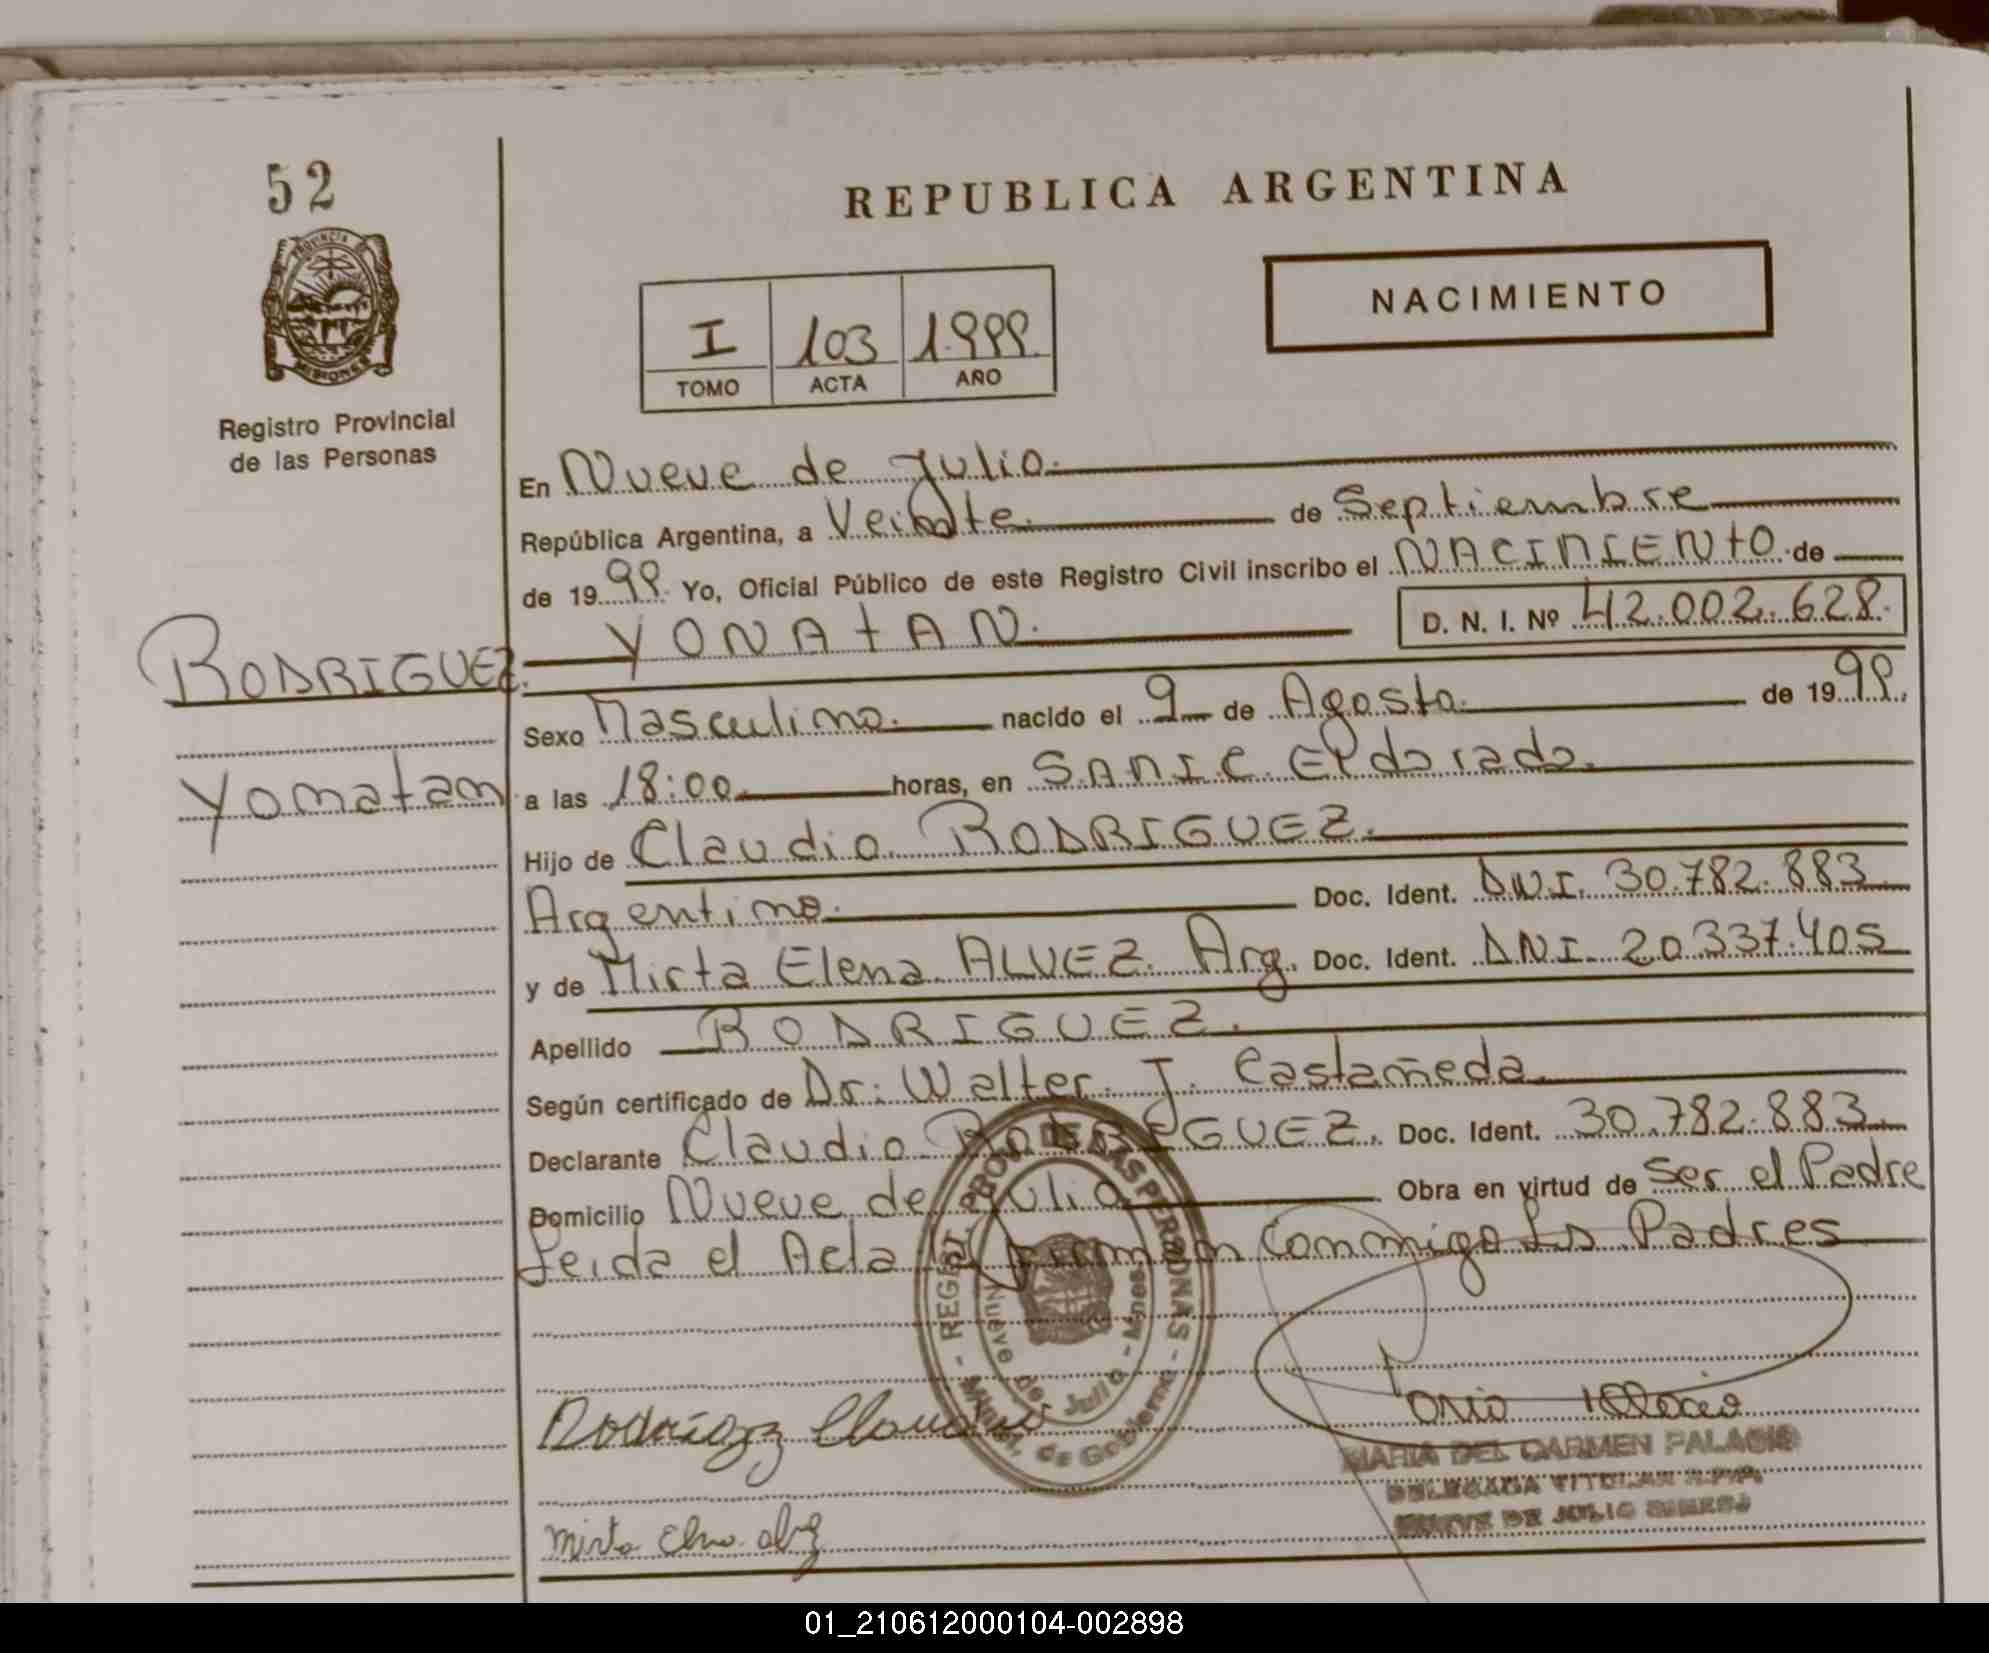 52
REPUBLICA ARGENTINA
PROVINCIA
MISIONES
NACIMIENTO
I 103 1.999.
TOMO ACTA AÑO
Registro Provincial
de las Personas
En Nueve de Julio.
República Argentina, a Veinte. de Septiembre
de 1999. Yo, Oficial Público de este Registro Civil inscribo el NACIMIENTO de
YONATAN. D. N. I. Nº 42.002.628.
RODRIGUEZ.
Sexo Masculino. nacido el 9 de Agosto. de 1999.
Yonatan
a las 18:00 horas, en SAMIC Eldorado.
Hijo de Claudio RODRIGUEZ.
Argentino. Doc. Ident. DNI. 30.782.883
y de Mirta Elena ALVEZ. Arg. Doc. Ident. DNI. 20.337.405
Apellido RODRIGUEZ.
Según certificado de Dr. Walter J. Castañeda.
Declarante Claudio RODRIGUEZ. Doc. Ident. 30.782.883.
Domicilio Nueve de Julio Obra en virtud de Ser el Padre
Leida el Acta firman conmigo los Padres
- REGIST. PROV. DE LAS PERSONAS -
Nueve de Julio - Mnes.
Minist. de Gobierno
Rodríguez Claudio
MARIA DEL CARMEN PALACIO
DELEGADA TITULAR R.P.P.
NUEVE DE JULIO
Mirta
01_210612000104-002898